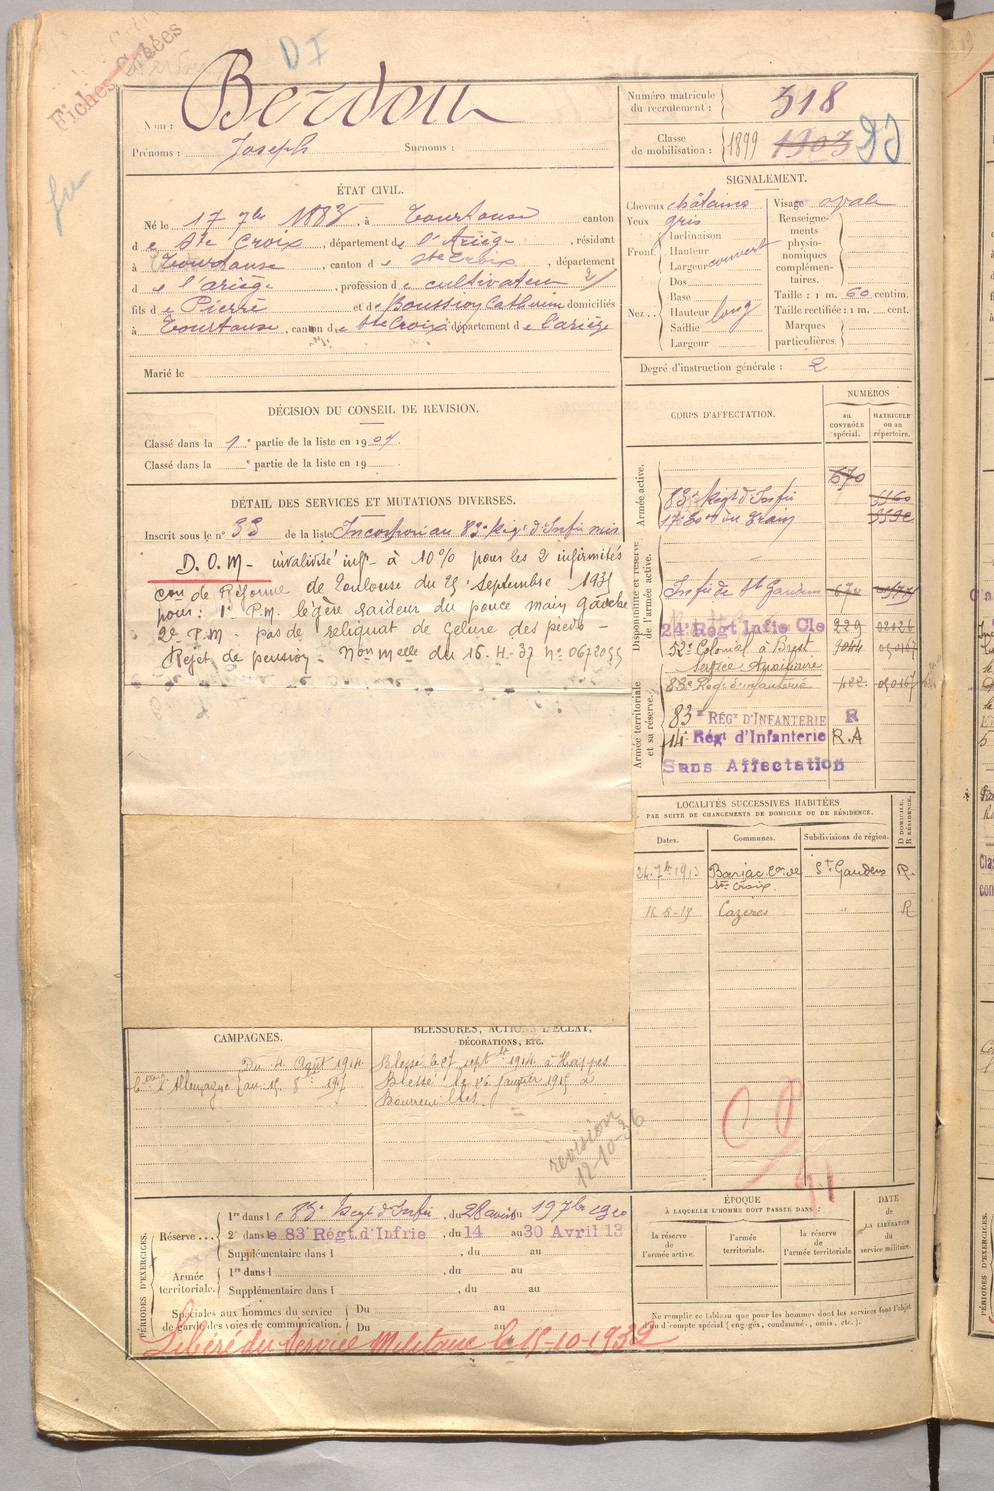 Fiches Créées
DI
Nom : Berdou
Prénoms : Joseph Surnoms :
Numéro matricule du recrutement : 318
Classe de mobilisation : 1899 1903
ÉTAT CIVIL.
Né le 17 7bre 1883, à Tourtouse canton
de Ste Croix, département de l'Ariège, résidant
à Tourtouse, canton de Ste Croix, département
de l'ariège, profession de cultivateur
fils de Pierre et de Boussion Catherine domiciliés
à Tourtouse, canton de Ste Croix département de l'ariège
Marié le
SIGNALEMENT.
Cheveux châtains
Yeux gris
Front. Inclinaison
Hauteur
Largeur couvert
Nez. Dos
Base
Hauteur long
Saillie
Largeur
Visage ovale
Renseignements physionomiques complémentaires.
Taille : 1 m. 60 centim.
Taille rectifiée : 1 m. cent.
Marques particulières.
Degré d'instruction générale : 2
DÉCISION DU CONSEIL DE RÉVISION.
Classé dans la 1e partie de la liste en 1904.
Classé dans la e partie de la liste en 19
DÉTAIL DES SERVICES ET MUTATIONS DIVERSES.
Inscrit sous le n° 33 de la liste Incorporé au 83e Regt d'Infie
D.O.M - invalidité infre à 10% pour les 2 infirmités
con de Réforme de Toulouse du 25 Septembre 1935
pour : 1° P.M. légère raideur du pouce main Gauche
2° P.M. pas de reliquat de gelure des pieds -
Rejet de pension. Non melle du 16.4.37 n° 0672055
CORPS D'AFFECTATION.
NUMÉROS
au CONTRÔLE spécial.
MATRICULE ou au répertoire.
Armée active.
670
83e Regt d'Infie
17e Eson du Train
Disponibilité et réserve de l'armée active.
Infie de St Gaudens
24 Régt Infie Cle 229 02126
52e Colonial à Brest 9044
Service Auxiliaire
Armée territoriale et sa réserve.
83e Regt d'infanterie
83e RÉGt D'INFANTERIE R
14e Régt d'Infanterie R.A
Sans Affectation
LOCALITÉS SUCCESSIVES HABITÉES
PAR SUITE DE CHANGEMENTS DE DOMICILE OU DE RÉSIDENCE.
Dates. Communes. Subdivisions de région. D DOMICILE. R RÉSIDENCE.
24-7bre 1913 Barjac con de Ste Croix. St Gaudens R.
Cazères " R
CAMPAGNES.
Con c. l'Allemagne
Du 4 Août 1914
BLESSURES, ACTIONS D'ÉCLAT, DÉCORATIONS, ETC.
Blessé le 27 septbre 1914 à
Blessé le 26 janvier 1915 à
revision
12-10-36
PÉRIODES D'EXERCICES.
Réserve... 1re dans le 83e Regt d'Infie, du 28 au 19 7bre 1910
2e dans le 83e Régt. d'Infrie, du 14 au 30 Avril 13
Supplémentaire dans l , du au
Armée territoriale. 1re dans l , du au
Supplémentaire dans l , du au
Spéciales aux hommes du service de garde des voies de communication. Du au
Du au
ÉPOQUE
À LAQUELLE L'HOMME DOIT PASSER DANS :
la réserve de l'armée active.
l'armée territoriale.
la réserve de l'armée territoriale
DATE de LA LIBÉRATION du service militaire.
Ne remplir ce tableau que pour les hommes dont les services font l'objet d'un compte spécial (engagés, condamnés, omis, etc.).
Libéré du Service Militaire le 15-10-1932